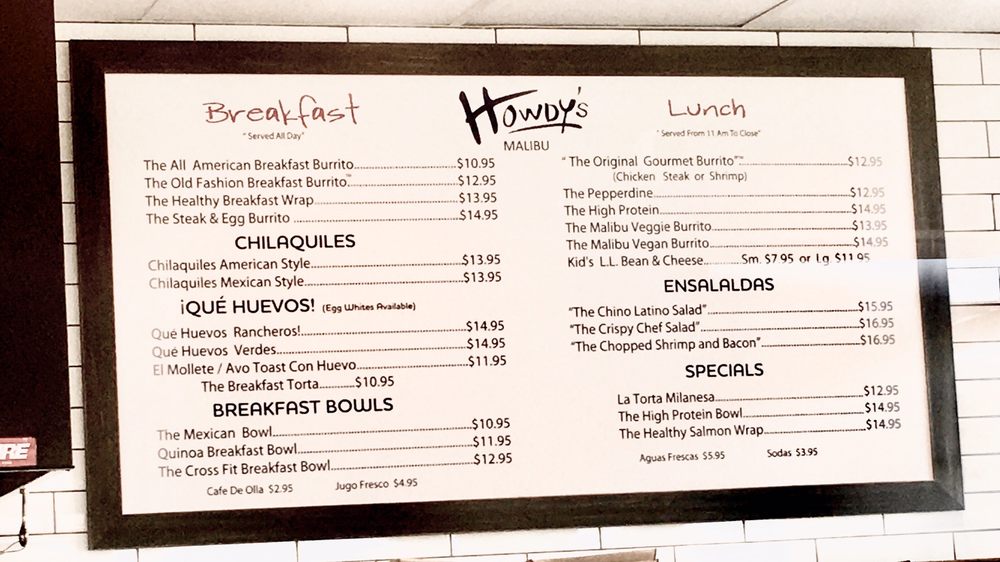 Howdy's
MALIBU
Breakfast
"Served All Day"
The All American Breakfast Burrito $10.95
The Old Fashion Breakfast Burrito™ $12.95
The Healthy Breakfast Wrap $13.95
The Steak & Egg Burrito $14.95
CHILAQUILES
Chilaquiles American Style $13.95
Chilaquiles Mexican Style $13.95
¡QUÉ HUEVOS! (Egg Whites Available)
Qué Huevos Rancheros! $14.95
Qué Huevos Verdes $14.95
El Mollete / Avo Toast Con Huevo $11.95
The Breakfast Torta $10.95
BREAKFAST BOWLS
The Mexican Bowl $10.95
Quinoa Breakfast Bowl $11.95
The Cross Fit Breakfast Bowl $12.95
Cafe De Olla $2.95 Jugo Fresco $4.95
Lunch
"Served From 11 Am To Close"
"The Original Gourmet Burrito"™ $12.95
(Chicken Steak or Shrimp)
The Pepperdine $12.95
The High Protein $14.95
The Malibu Veggie Burrito $13.95
The Malibu Vegan Burrito $14.95
Kid's L.L. Bean & Cheese Sm. $7.95 or Lg. $11.95
ENSALALDAS
"The Chino Latino Salad" $15.95
"The Crispy Chef Salad" $16.95
"The Chopped Shrimp and Bacon" $16.95
SPECIALS
La Torta Milanesa $12.95
The High Protein Bowl $14.95
The Healthy Salmon Wrap $14.95
Aguas Frescas $5.95 Sodas $3.95